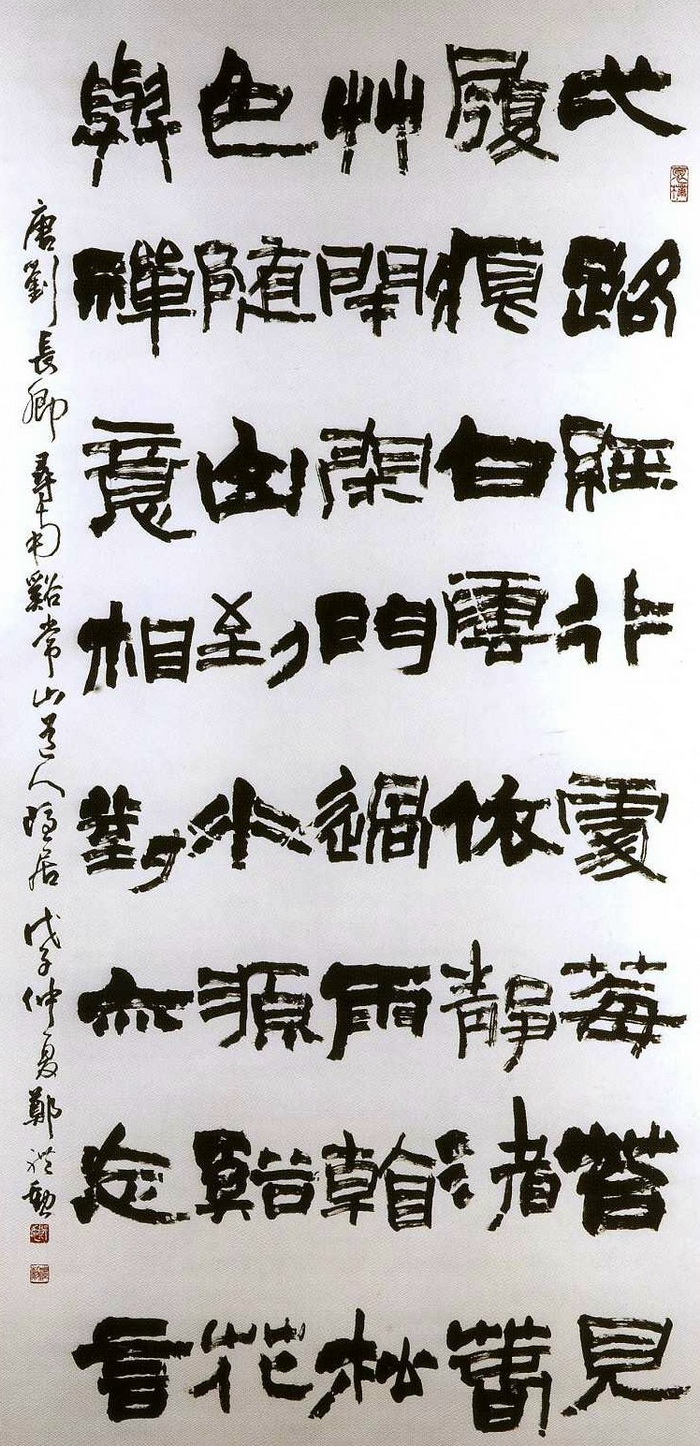 弌路經行處莓苔見
履痕白雲依靜渚萅
艸閉閑門過雨看松
色随山到水源谿花
與禪意相對亦忘言
唐劉長卿尋南谿常山道人隱居 戊子仲夏鄭禮勳